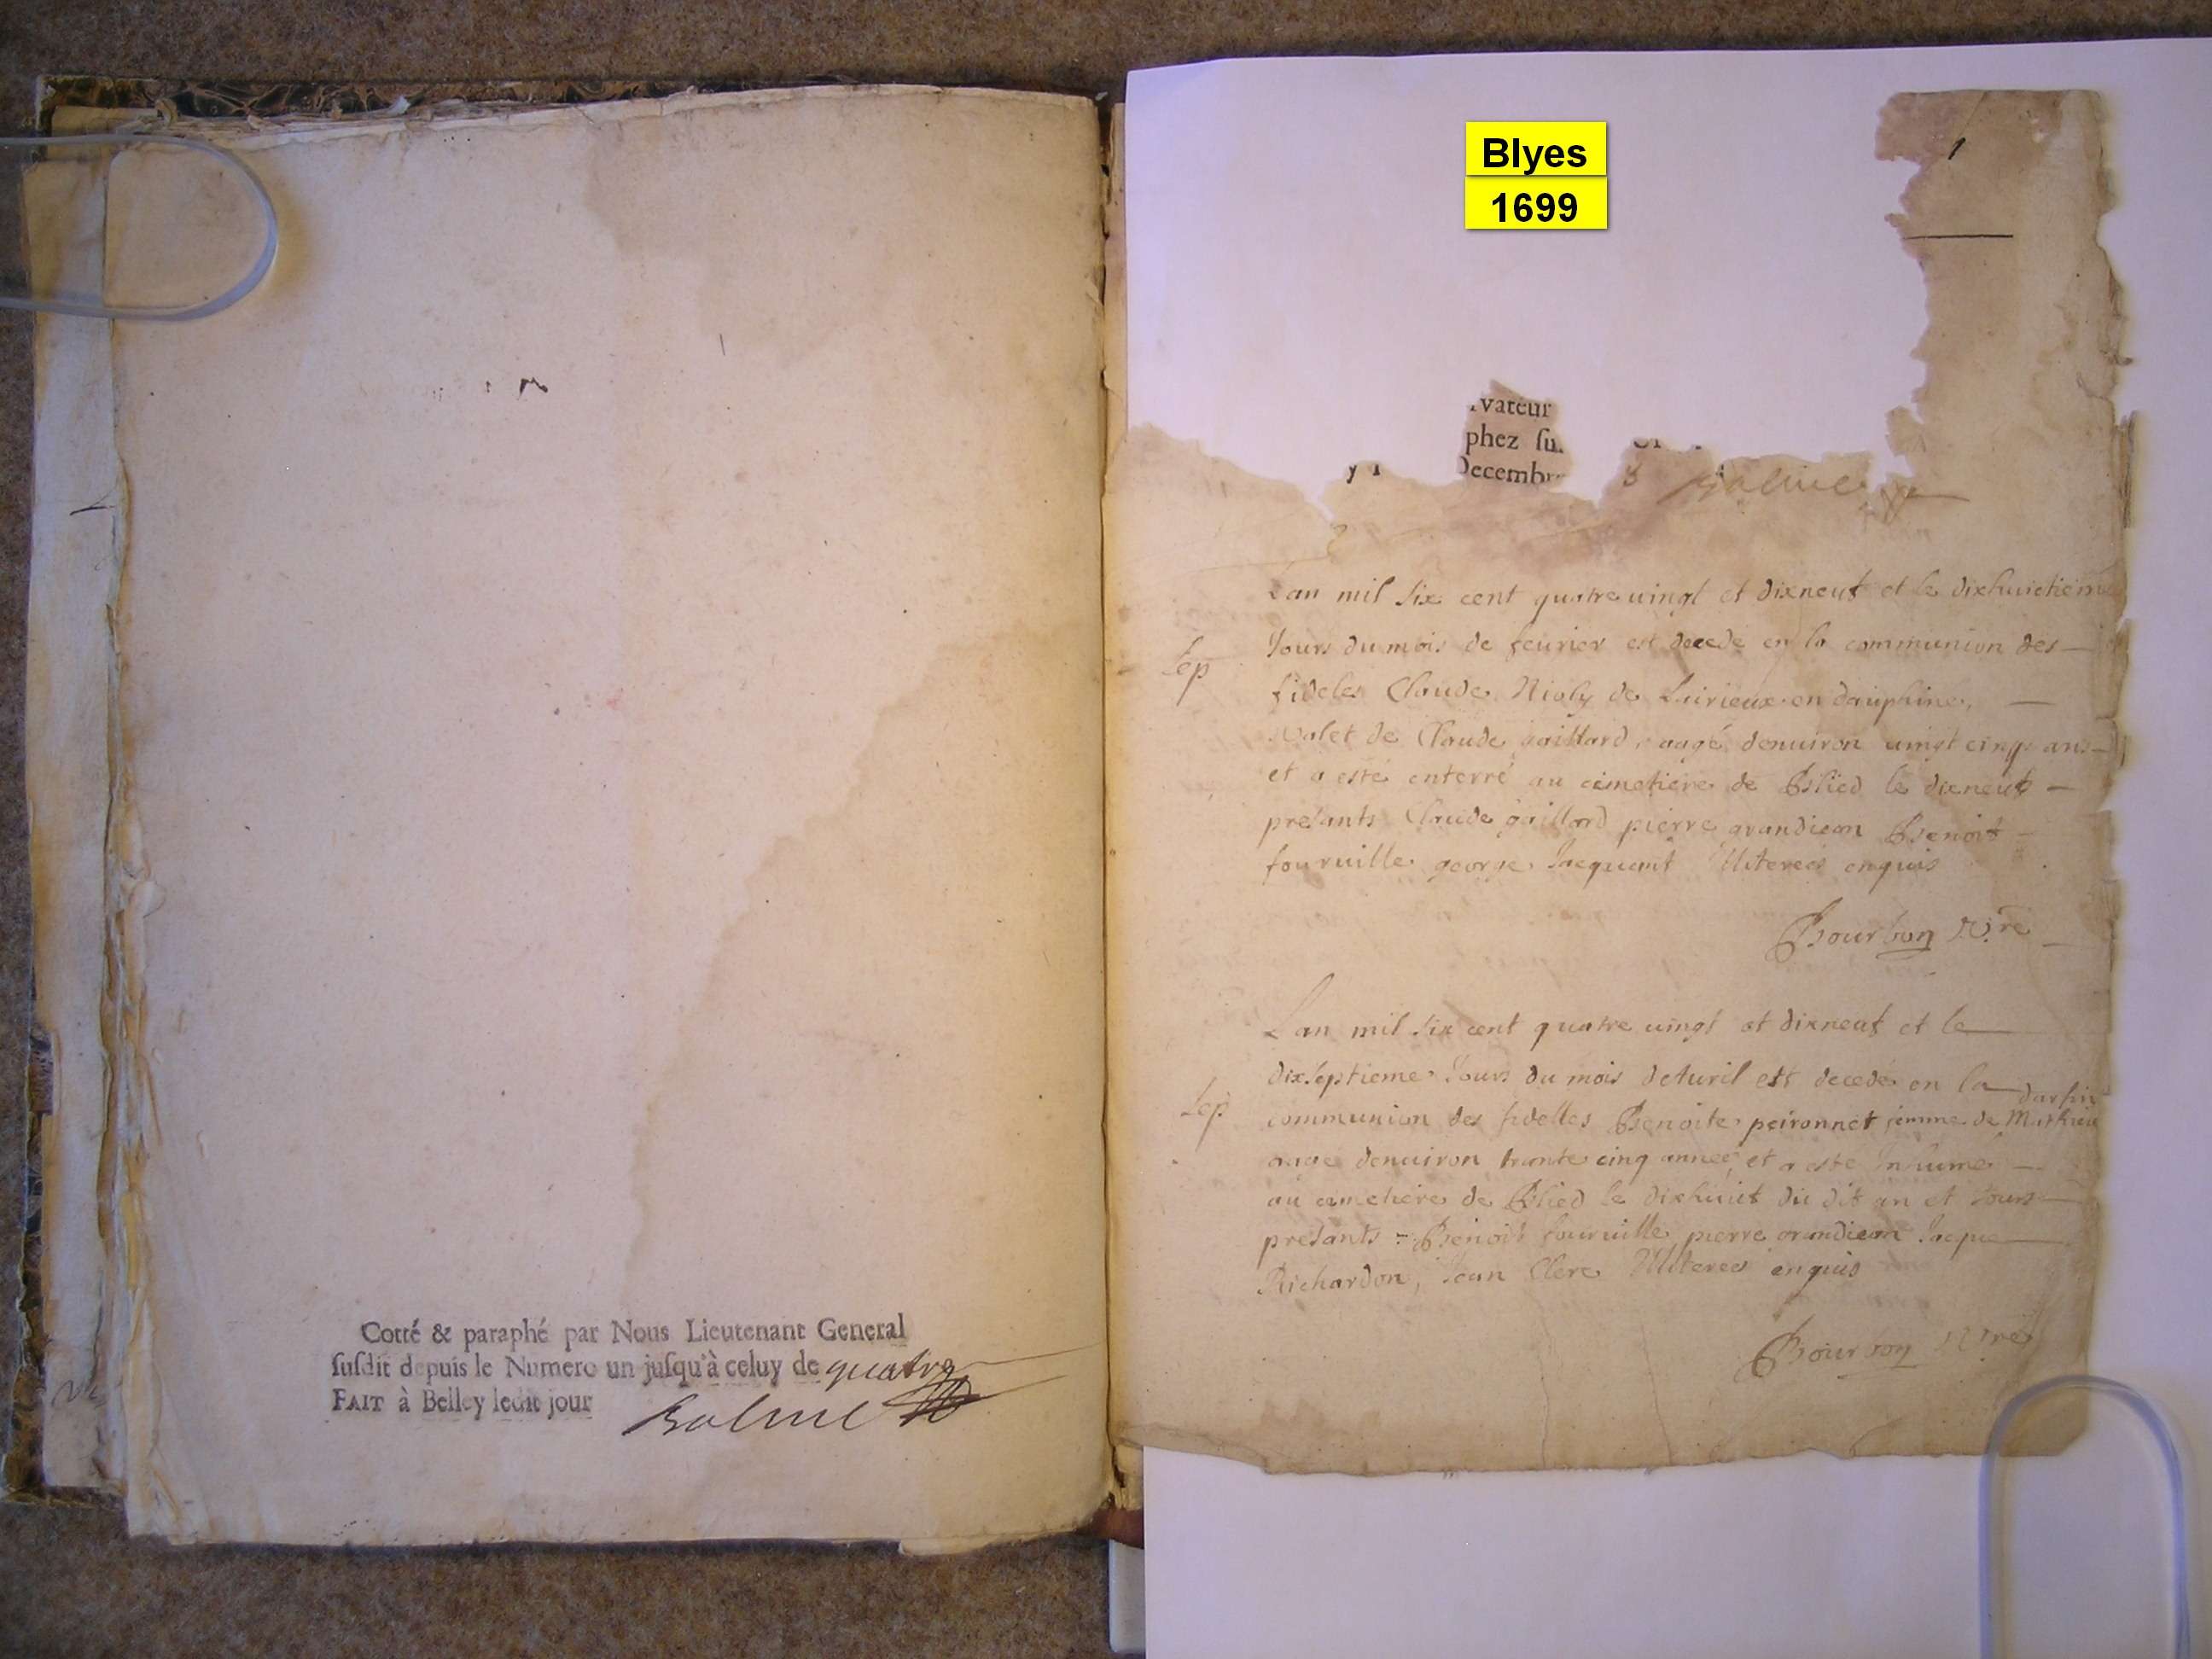 Cotté & paraphé par Nous Lieutenant General
ſuſdit depuis le Numero un juſqu'à celuy de quatre
FAIT à Belley ledit jour
Balme
Blyes
1699
1
rvateur
phez ſu
Decembr
Balme
Lan mil six cent quatre uingt et dixneuf et le dixhuictieme
Jours du mois de feurier est decede en la communion des
Sep
fideles Claude de en dauphine,
Valet de Claude gaillard, aagé denuiron uingt cinq ans
et a esté enterré au cimetiere de Blied le dixneuf
presants Claude gaillard pierre grandiean Benoit
fouruille george Jacquemt Illiterés enquis
Bourbon Vre
Lan mil six cent quatre uingt et dixneuf et le
dixseptieme Jours du mois dAuril est decedé en la
Sep
communion des fidelles Benoite peironnet femme de Mathieu
aage denuiron trante cinq année et a este Inhumé
au cemetiere de Blied le dixhuict du dit an et Jours
presants Benoit fouruille pierre grandiean Jaque
Richardon, Jean Clerc Illiterés enquis
Bourbon Vre